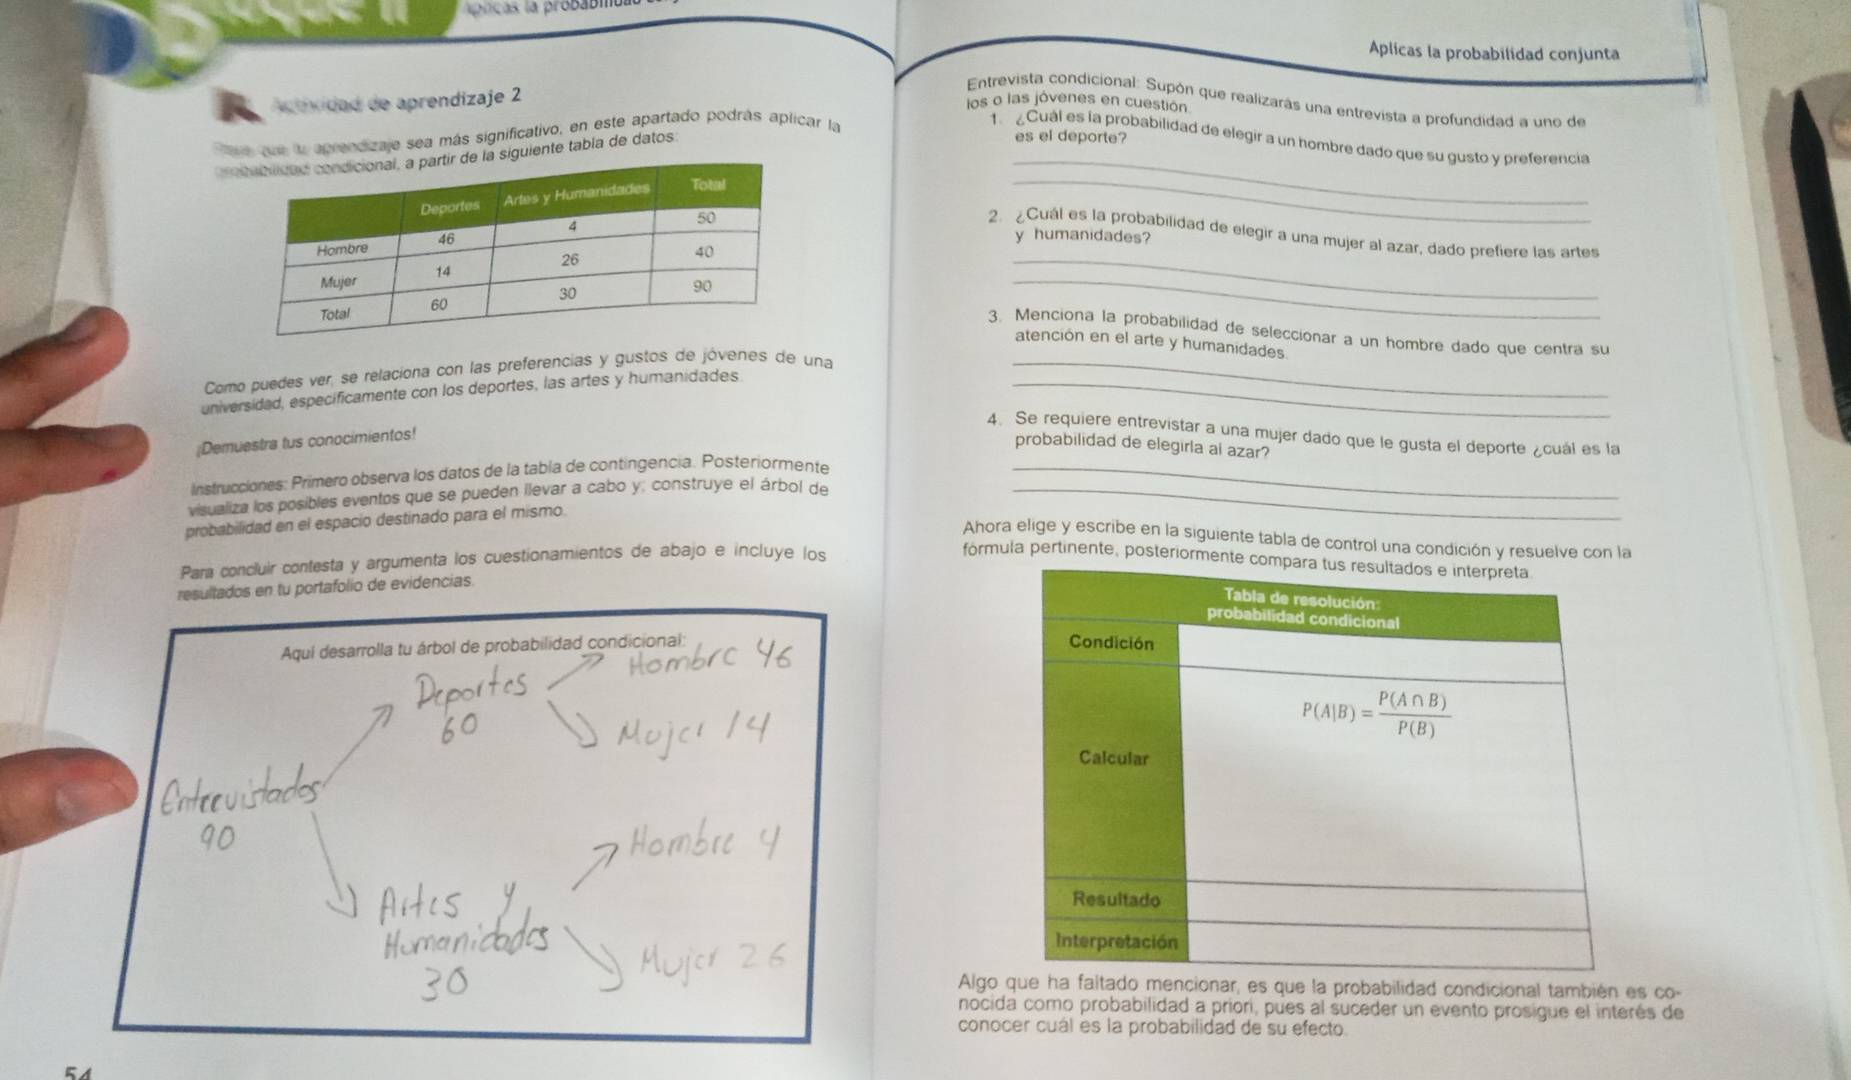 Aplicas la
Actividad de aprendizaje 2
que tu aprendizaje sea más significativo, en este apartado podrás aplicar la
probabilidad condicional, a partir de la siguiente tabla de datos:
Deportes Artes y Humanidades Total
Hombre 46 4 50
Mujer 14 26 40
Total 60 30 90
Como puedes ver, se relaciona con las preferencias y gustos de jóvenes de una
universidad, específicamente con los deportes, las artes y humanidades.
¡Demuestra tus conocimientos!
Instrucciones: Primero observa los datos de la tabla de contingencia. Posteriormente
visualiza los posibles eventos que se pueden llevar a cabo y; construye el árbol de
probabilidad en el espacio destinado para el mismo.
Para concluir contesta y argumenta los cuestionamientos de abajo e incluye los
resultados en tu portafolio de evidencias.
Aquí desarrolla tu árbol de probabilidad condicional:
Hombre 46
Deportes
60
Mujer 14
Entrevistados
90
Hombre 4
Artes y
Humanidades
30
Mujer 26
54
Aplicas la probabilidad conjunta
Entrevista condicional: Supón que realizarás una entrevista a profundidad a uno de
los o las jóvenes en cuestión.
1. ¿Cuál es la probabilidad de elegir a un hombre dado que su gusto y preferencia
es el deporte?
2. ¿Cuál es la probabilidad de elegir a una mujer al azar, dado prefiere las artes
y humanidades?
3. Menciona la probabilidad de seleccionar a un hombre dado que centra su
atención en el arte y humanidades.
4. Se requiere entrevistar a una mujer dado que le gusta el deporte ¿cuál es la
probabilidad de elegirla al azar?
Ahora elige y escribe en la siguiente tabla de control una condición y resuelve con la
fórmula pertinente, posteriormente compara tus resultados e interpreta.
Tabla de resolución:
probabilidad condicional
Condición
P(A|B) = P(A ∩ B) / P(B)
Calcular
Resultado
Interpretación
Algo que ha faltado mencionar, es que la probabilidad condicional también es co-
nocida como probabilidad a priori, pues al suceder un evento prosigue el interés de
conocer cuál es la probabilidad de su efecto.